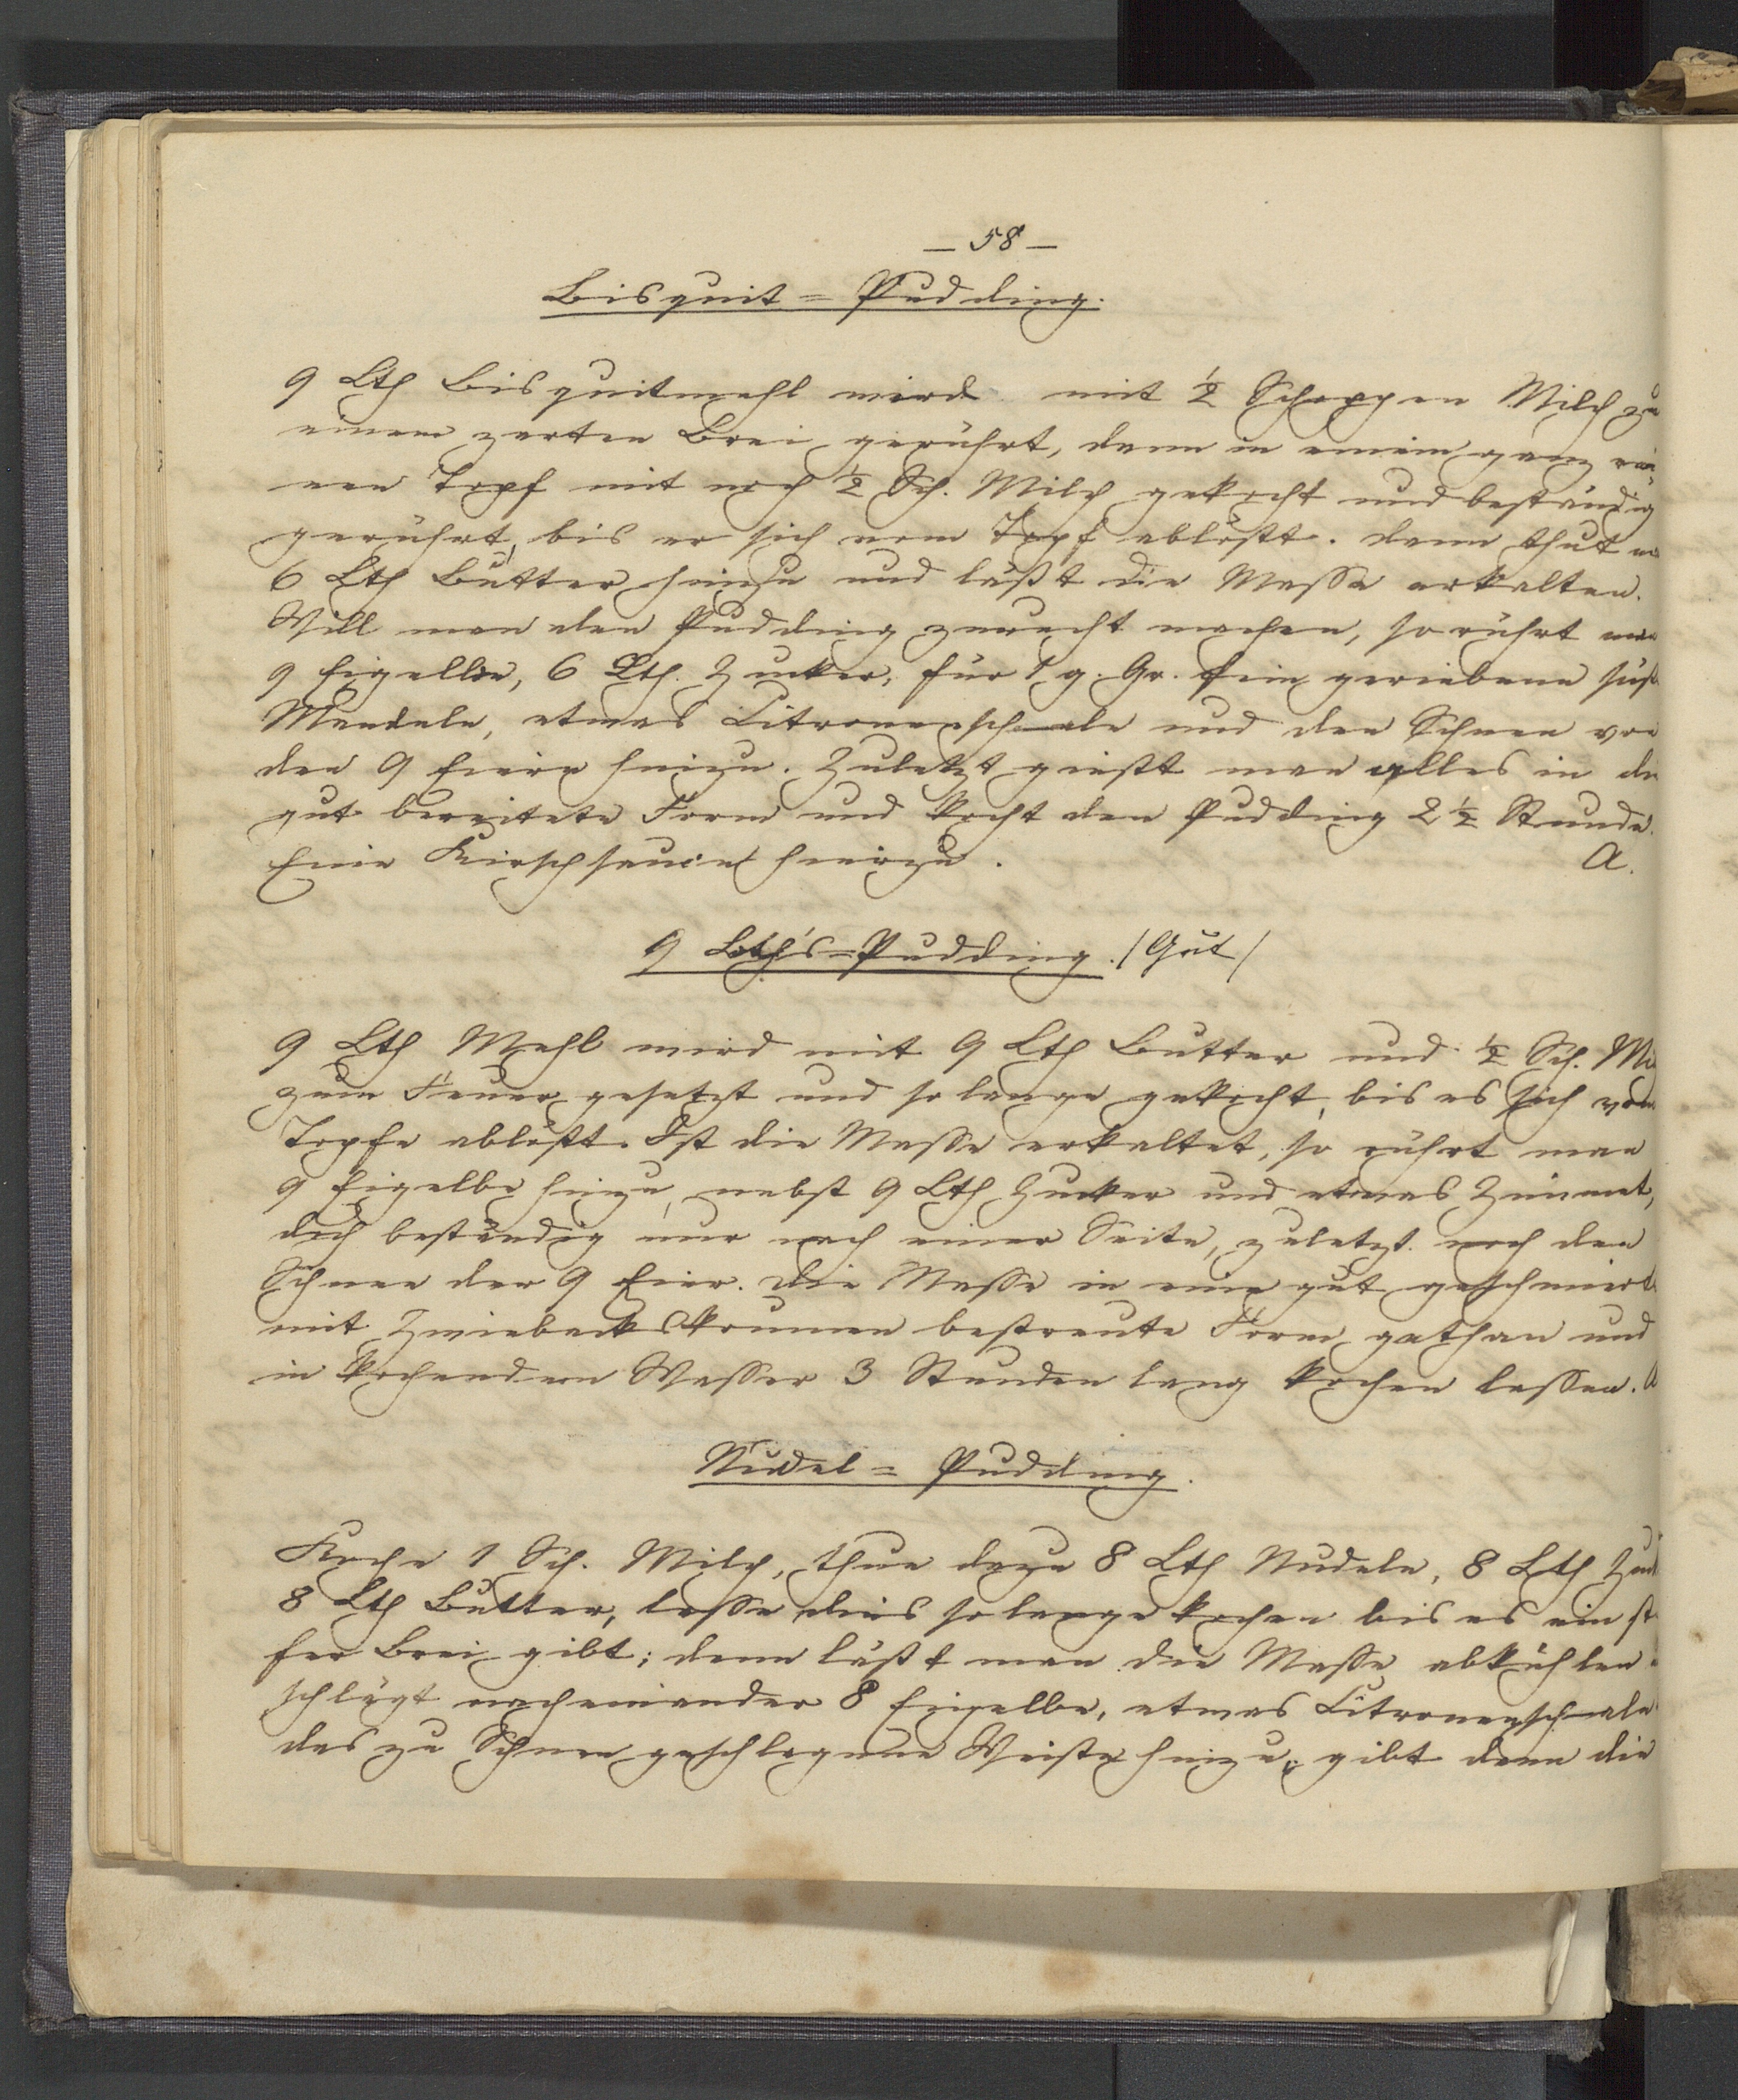 — 58 —
Bisquit = Pudding.
9 Lth Bisquitmehl wird mit ½ Schoppen Milch zu
einem zarten Brei gerührt, dann in einem ganz rei-
nen Topf mit noch ½ Sch. Milch gekocht und beständig
gerührt, bis er sich vom Topf ablößt. dann thut
6 Lth Butter hinzu und läßt die Masse erkalten.
Will man den Pudding zurecht machen, so rührt man
9 Eigelbe, 6 Lth. Zucker, für 1 g. Gr. fein geriebene süß
Mandeln, etwas Citronenschaale und den Schnee von
den 9 Eiern hinzu. Zuletzt gießt man alles in die
gut bereitete Form und kocht den Pudding 2½ Stunde.
Eine Kirschsauce hierzu. A.
9 Lth's=Pudding. /Gut/
9 Lth Mehl wird mit 9 Lth Butter und ½ Sch. Mi
zum Feuer gesetzt und so lange gekocht, bis es sich vom
Topfe ablößt. Ist die Masse erkaltet, so rührt man
9 Eigelbe hinzu, nebst 9 Lth Zucker und etwas Zimmet,
doch beständig nur nach einer Seite, zuletzt noch den
Schnee der 9 Eier. Die Masse in eine gut geschmiert
mit Zwiebackskrumen bestreute Form gethan und
in kochendem Wasser 3 Stunden lang kochen lassen. A
Nudel = Pudding.
Koche 1 Sch. Milch, thue dazu 8 Lth Nudeln, 8 Lth Zuck
8 Lth Butter, lasse dies so lange kochen bis es ein stei
fer Brei gibt; dann läßt man die Masse abkühlen
schlägt nacheinander 8 Eigelbe, etwas Citronenschaale
das zu Schnee geschlagene Weiße hinzu, gibt dann die